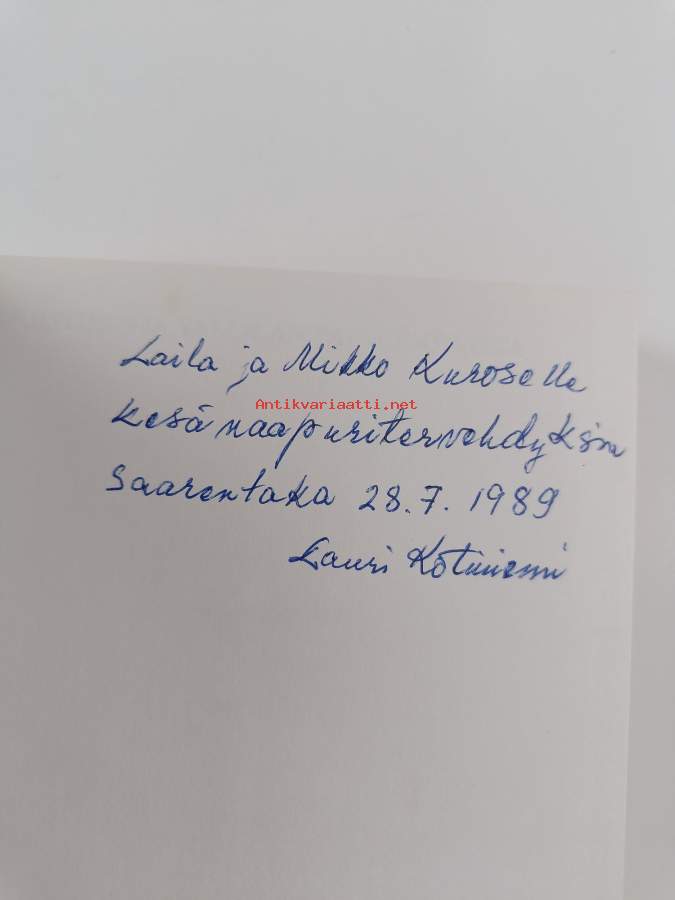 Laila ja Mikko Kuroselle
Antikvariaatti.net
kesänaapuritervehdyksin
Saarentaka 28.7.1989
Lauri Kotiniemi